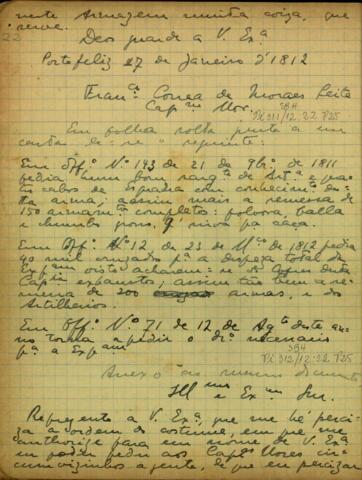 neste Armazem muita coiza, que
serve.
Deos guarde a V. Exª
Porto feliz 27 de Janeiro d'1812
Franᶜᵒ Correa de Moraes Leite
Capᵐ Mor.
Em folha solta junta a um
lê-se o seguinte:
Em Offᵒ Nº 143 de 21 de 9bʳᵒ de 1811
pedia hum bom sargᵗᵒ de Artª e
cabos de esquadra com conhecimᵗᵒ des-
ta arma; assim mais a remessa de
150 armamᵗᵒˢ completos: polvora, balla
e chumbo grosso, q' sirva pª caça.
Em Offᵒ Nº 12 de 23 de Mᶜᵒ de 1812 pedia
40 mil cruzados pª a despeza total da
Expᵃᵐ visto acharem-se os Cofres desta
Capⁿⁱᵃ exhaustos; assim tão bem a re-
messa de 200 armas, e dos
Artilheiros.
Em Offᵒ Nº 71 de 12 de Agᵗᵒ deste an-
no torna a pedir o dʳᵒ necesario
pª a Expᵃᵐ
Anexo ao mesmo documento
Illᵐᵒ e Exᵐᵒ Snr.
Represento a V. Exª, que me hé perci-
za a ordem do costume, em que me
authorize para em nome de V. Exª
eu poder pedir aos Capᵉˢ Mores cir-
cumvizinhos a gente, de que eu percizar